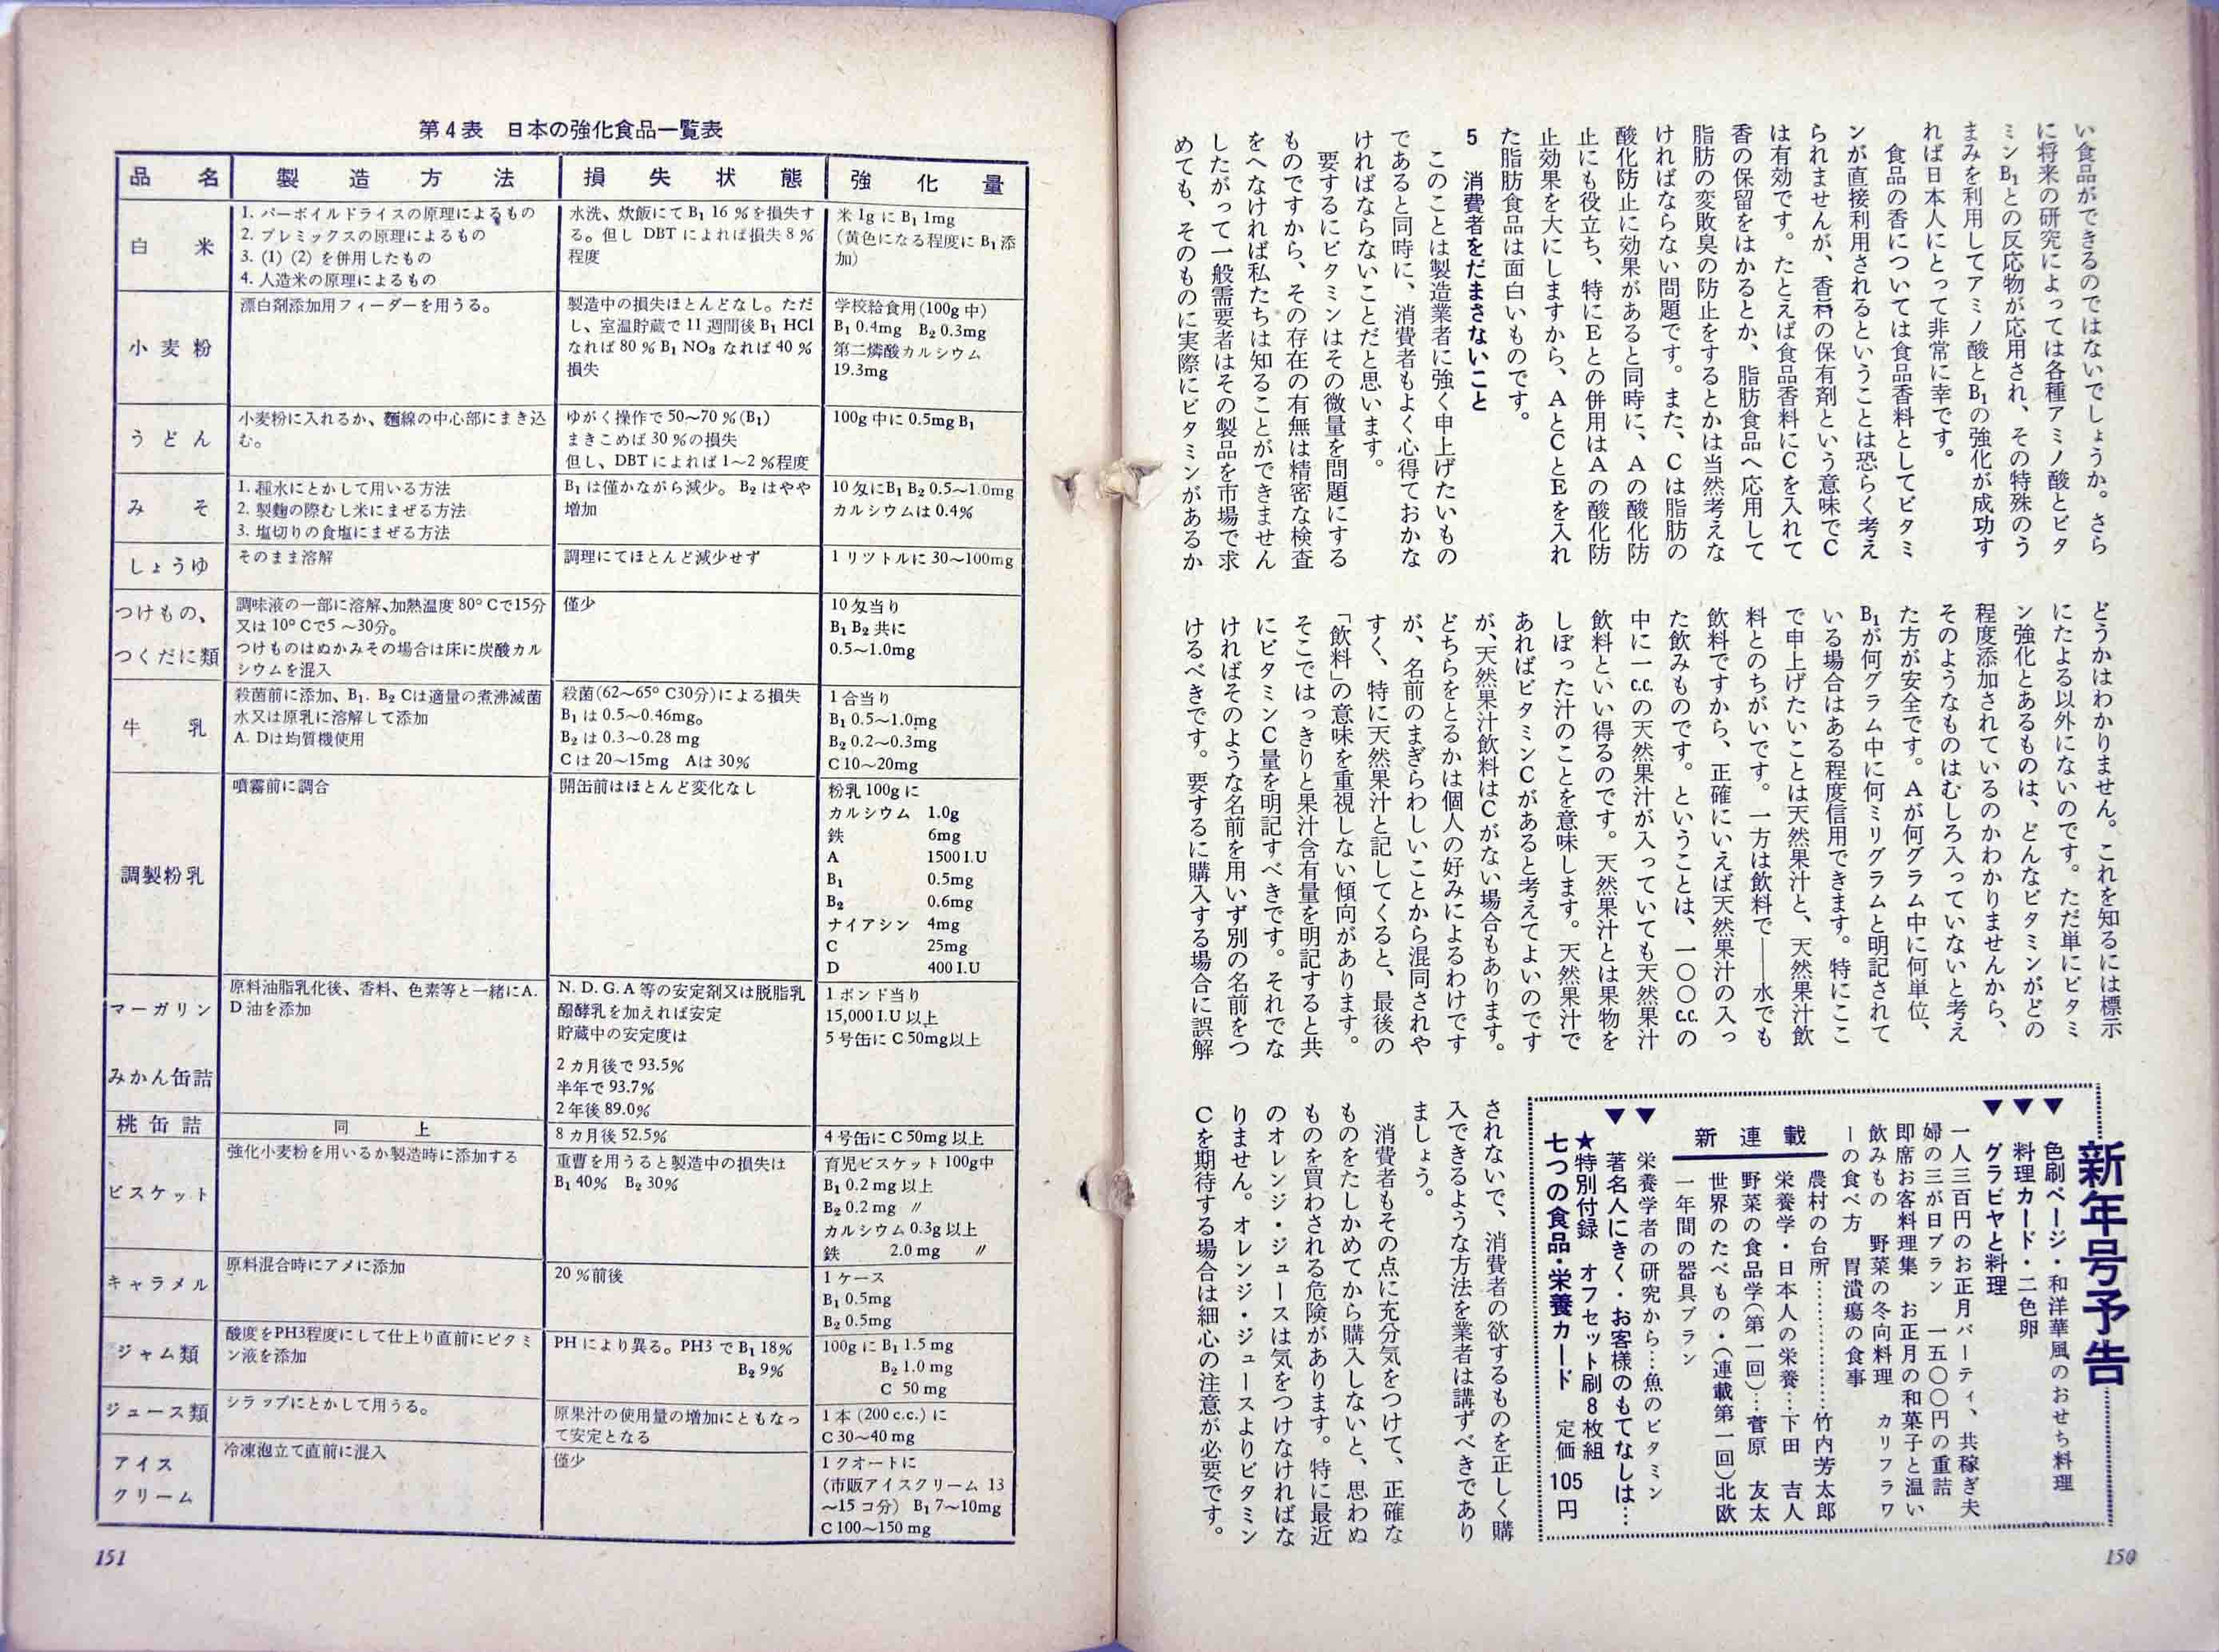 い食品ができるのではないでしょうか。さら
に将来の研究によっては各種アミノ酸とビタ
ミンB₁との反応物が応用され、その特殊のう
まみを利用してアミノ酸とB₁の強化が成功す
れば日本人にとって非常に幸です。
食品の香については食品香料としてビタミ
ンが直接利用されるということは恐らく考え
られませんが、香料の保有剤という意味でC
は有効です。たとえば食品香料にCを入れて
香の保留をはかるとか、脂肪食品へ応用して
脂肪の変敗臭の防止をするとかは当然考えな
ければならない問題です。また、Cは脂肪の
酸化防止に効果があると同時に、Aの酸化防
止にも役立ち、特にEとの併用はAの酸化防
止効果を大にしますから、AとCとEを入れ
た脂肪食品は面白いものです。
5 消費者をだまさないこと
このことは製造業者に強く申上げたいもの
であると同時に、消費者もよく心得ておかな
ければならないことだと思います。
要するにビタミンはその微量を問題にする
ものですから、その存在の有無は精密な検査
をへなければ私たちは知ることができません
したがって一般需要者はその製品を市場で求
めても、そのものに実際にビタミンがあるか
どうかはわかりません。これを知るには標示
にたよる以外にないのです。ただ単にビタミ
ン強化とあるものは、どんなビタミンがどの
程度添加されているのかわかりませんから、
そのようなものはむしろ入っていないと考え
た方が安全です。Aが何グラム中に何単位、
B₁が何グラム中に何ミリグラムと明記されて
いる場合はある程度信用できます。特にここ
で申上げたいことは天然果汁と、天然果汁飲
料とのちがいです。一方は飲料で――水でも
飲料ですから、正確にいえば天然果汁の入っ
た飲みものです。ということは、一〇〇c.c.の
中に一c.c.の天然果汁が入っていても天然果汁
飲料といい得るのです。天然果汁とは果物を
しぼった汁のことを意味します。天然果汁で
あればビタミンCがあると考えてよいのです
が、天然果汁飲料はCがない場合もあります。
どちらをとるかは個人の好みによるわけです
が、名前のまぎらわしいことから混同されや
すく、特に天然果汁と記してくると、最後の
「飲料」の意味を重視しない傾向があります。
そこではっきりと果汁含有量を明記すると共
にビタミンC量を明記すべきです。それでな
ければそのような名前を用いず別の名前をつ
けるべきです。要するに購入する場合に誤解
されないで、消費者の欲するものを正しく購
入できるような方法を業者は講ずべきであり
ましょう。
消費者もその点に充分気をつけて、正確な
ものをたしかめてから購入しないと、思わぬ
ものを買わされる危険があります。特に最近
のオレンジ・ジュースは気をつけなければな
りません。オレンジ・ジュースよりビタミン
Cを期待する場合は細心の注意が必要です。
新年号予告
▼色刷ページ・和洋華風のおせち料理
▼料理カード・二色卵
▼グラビヤと料理
一人三百円のお正月パーティ、共稼ぎ夫
婦の三が日プラン 一五〇〇円の重詰
即席お客料理集 お正月の和菓子と温い
飲みもの 野菜の冬向料理 カリフラワ
ーの食べ方 胃潰瘍の食事
新連載
農村の台所…………竹内芳太郎
栄養学・日本人の栄養…下田 吉人
野菜の食品学(第一回)…菅原 友太
世界のたべもの・(連載第一回)北欧
一年間の器具プラン
▼栄養学者の研究から…魚のビタミン
▼著名人にきく・お客様のもてなしは…
★特別付録 オフセット刷8枚組
七つの食品・栄養カード 定価105円
150
第4表 日本の強化食品一覧表
品名 製造方法 損失状態 強化量
白米
1. パーボイルドライスの原理によるもの
2. プレミックスの原理によるもの
3. (1) (2) を併用したもの
4. 人造米の原理によるもの
水洗、炊飯にて B₁ 16 %を損失す
る。但し DBT によれば損失 8 %
程度
米 1g に B₁ 1mg
(黄色になる程度に B₁ 添
加)
小麦粉
漂白剤添加用フィーダーを用うる。
製造中の損失ほとんどなし。ただ
し、室温貯蔵で 11 週間後 B₁ HCl
なれば 80 % B₁ NO₃ なれば 40 %
損失
学校給食用(100g 中)
B₁ 0.4mg B₂ 0.3mg
第二燐酸カルシウム
19.3mg
うどん
小麦粉に入れるか、麺線の中心部にまき込
む。
ゆがく操作で 50〜70 %(B₁)
まきこめば 30 %の損失
但し、DBT によれば 1〜2 %程度
100g 中に 0.5mg B₁
みそ
1. 種水にとかして用いる方法
2. 製麹の際むし米にまぜる方法
3. 塩切りの食塩にまぜる方法
B₁ は僅かながら減少。B₂ はやや
増加
10 匁にB₁ B₂ 0.5〜1.0mg
カルシウムは 0.4%
しょうゆ
そのまま溶解
調理にてほとんど減少せず
1 リツトルに 30〜100mg
つけもの、
つくだに類
調味液の一部に溶解、加熱温度 80° Cで15分
又は 10° Cで5 〜30分。
つけものはぬかみその場合は床に炭酸カル
シウムを混入
僅少
10 匁当り
B₁ B₂ 共に
0.5〜1.0mg
牛乳
殺菌前に添加、B₁. B₂ Cは適量の煮沸滅菌
水又は原乳に溶解して添加
A. Dは均質機使用
殺菌(62〜65° C30分)による損失
B₁ は 0.5〜0.46mg。
B₂ は 0.3〜0.28 mg
C は 20〜15mg Aは 30%
1 合当り
B₁ 0.5〜1.0mg
B₂ 0.2〜0.3mg
C 10〜20mg
調製粉乳
噴霧前に調合
開缶前はほとんど変化なし
粉乳 100g に
カルシウム 1.0g
鉄 6mg
A 1500 I.U
B₁ 0.5mg
B₂ 0.6mg
ナイアシン 4mg
C 25mg
D 400 I.U
マーガリン
原料油脂乳化後、香料、色素等と一緒にA.
D 油を添加
N. D. G. A 等の安定剤又は脱脂乳
醱酵乳を加えれば安定
貯蔵中の安定度は
1 ポンド当り
15,000 I.U 以上
5 号缶に C 50mg以上
みかん缶詰
2 カ月後で 93.5%
半年で 93.7%
2 年後 89.0%
桃缶詰
同上
8 カ月後 52.5%
4 号缶に C 50mg 以上
ビスケット
強化小麦粉を用いるか製造時に添加する
重曹を用うると製造中の損失は
B₁ 40% B₂ 30%
育児ビスケット 100g中
B₁ 0.2 mg 以上
B₂ 0.2 mg 〃
カルシウム 0.3g 以上
鉄 2.0 mg 〃
キャラメル
原料混合時にアメに添加
20 %前後
1 ケース
B₁ 0.5mg
B₂ 0.5mg
ジャム類
酸度をPH3程度にして仕上り直前にビタミ
ン液を添加
PH により異る。PH3 で B₁ 18%
B₂ 9%
100g に B₁ 1.5 mg
B₂ 1.0 mg
C 50 mg
ジュース類
シラップにとかして用うる。
原果汁の使用量の増加にともなっ
て安定となる
1 本 (200 c.c.) に
C 30〜40 mg
アイス
クリーム
冷凍泡立て直前に混入
僅少
1 クオートに
(市販アイスクリーム 13
〜15 コ分) B₁ 7〜10mg
C 100〜150 mg
151